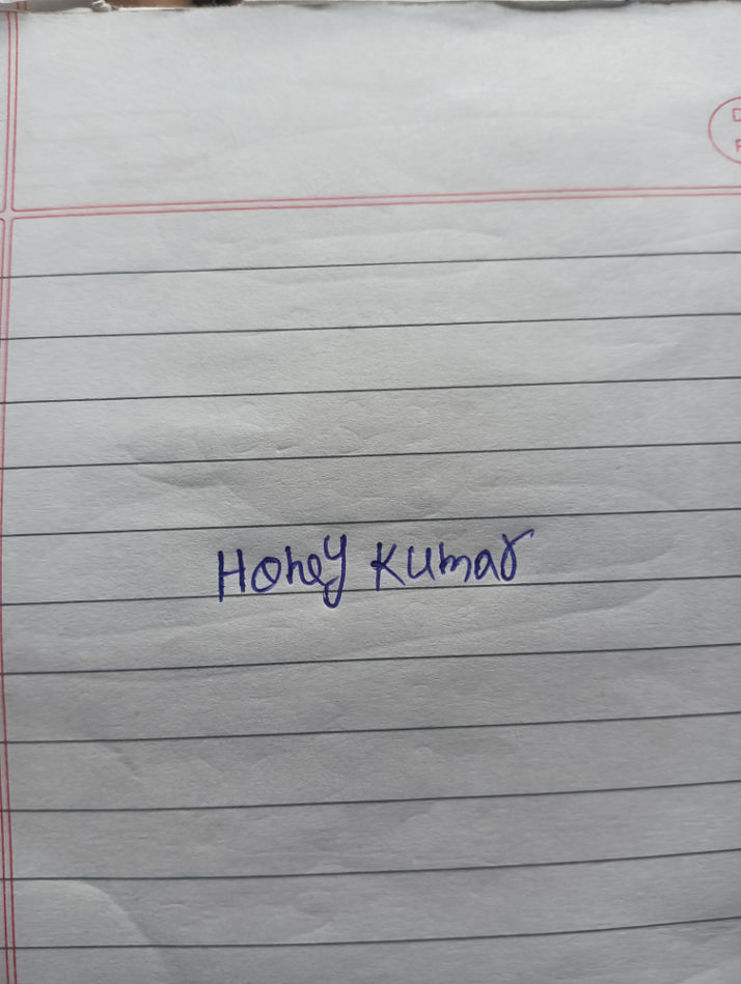 Honey Kumar